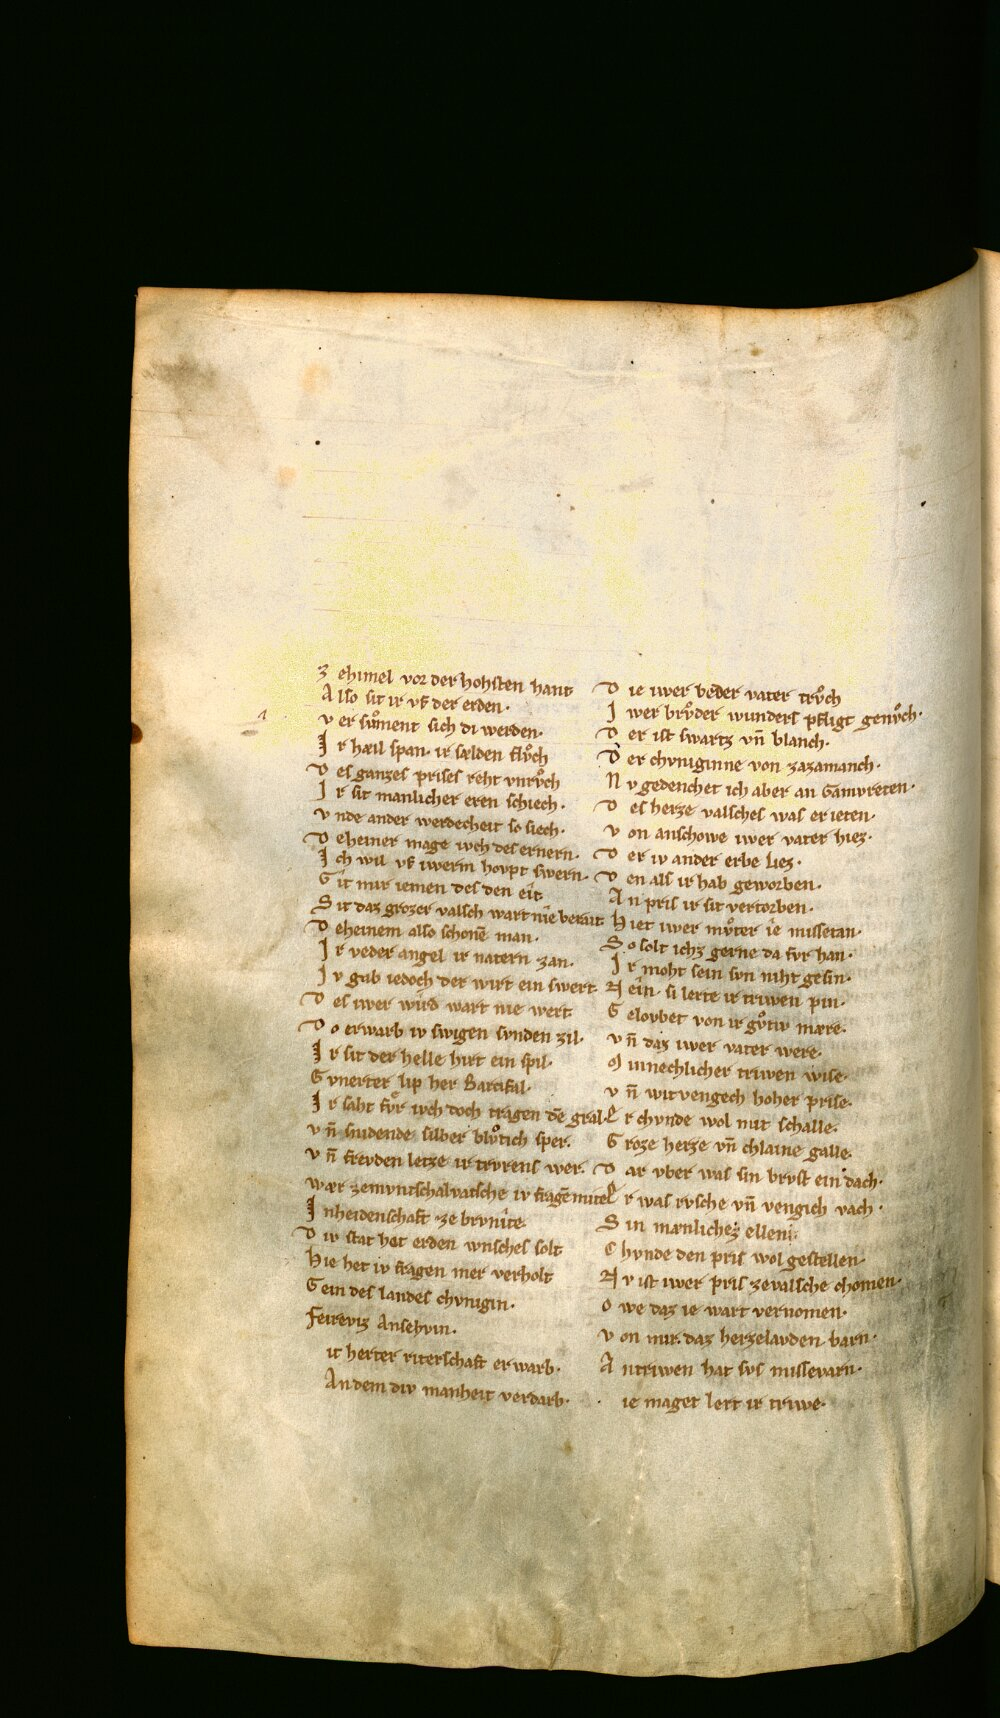 Z ehimel vor der hohsten hant
A lso sit ir vf der erden·
v er sv̊ment sich di werden·
I r hæil span· ir sælden flv̊ch
D es ganzes prises reht vnrv̊ch
I r sit manlicher eren schiech·
v nde ander werdecheit so siech·
D eheiner mage iwch des ernern·
I ch wil vf iwerm hovpt swern·
G it mir iemen des den eit
S it daz grozer valsch wart nie berait
D eheinem also schonē man·
I r veder angel ir natern zan·
I v gab iedoch der wirt ein swert
D es iwer wird wart nie wert
D o erwarb iv swigen svnden zil·
I r sit der helle hirt ein spil·
G vnerter lip her Parcifal·
I r saht fv̊r iwch doch tragen dē gral
v n̄ snidende silber blv̊tich sper·
v n̄ frevden letze ir trvrens wer·
wær zemvntschalvatsche iv fragē mite
I nheidenschaft ze brvnite
D iv stat het erden wnsches solt
Hie het iv fragen mer verholt
G ein des landes chvnigin·
Feirefiz Ansehvin·
it herter riterschaft erwarb·
An dem div manheit verdarb·
D ie iwer beder vater trv̊ch
I wer brv̊der wunders pfligt genv̊ch·
D er ist swartz vn̄ blanch·
D er chvniginne von zazamanch·
N v gedenchet ich aber an Gamvreten·
D es herze valsches was erieten·
v on anschowe iwer vater hiez·
D er iv ander erbe liez·
D en als ir hab geworben·
A n pris ir sit vertorben·
Hiet iwer mv̊ter ie missetan·
S o solt ichz gerne da fvr han·
I r moht sein svn niht gesin·
N ein· si lerte ir triwen pin·
G elovbet von ir gv̊tiv mære·
v n̄ daz iwer vater were·
M innechlicher triwen wise·
v n̄ witvengech hoher prise·
E r chvnde wol mit schalle·
G roze herze vn̄ chlaine galle·
D ar vber was sin brvst ein dach·
E r was rvsche vn̄ vengich vach·
S in mænlichez ellen·
C hvnde den pris wol gestellen·
N v ist iwer pris zevalsche chomen·
O we daz ie wart vernomen·
v on mir· daz herzelauden barn·
A n triwen hat svs missevarn·
ie maget lert ir triwe·